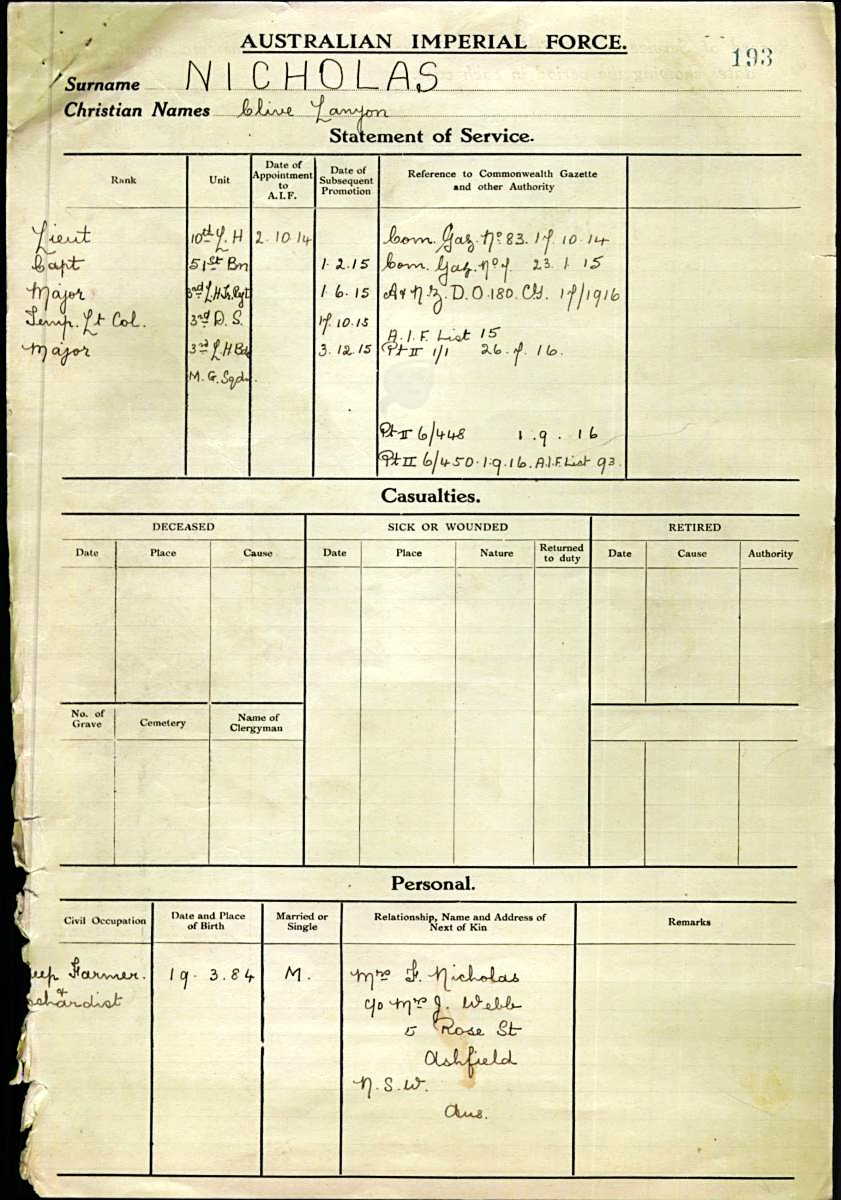 AUSTRALIAN IMPERIAL FORCE.
193
Surname NICHOLAS
Christian Names Clive Lanyon
Statement of Service.
Rank Unit Date of Appointment to A.I.F. Date of Subsequent Promotion Reference to Commonwealth Gazette and other Authority
Lieut 10th L.H 2.10.14 Com. Gaz. No. 83. 17.10.14
Capt 51st Bn 1.2.15 Com. Gaz. No 7 23.1.15
Major 3rd L.H.Tr.Rgt 1.6.15 A & N.Z. D.O.180. 17/1916
Temp. Lt Col. 3rd D.S. 17.10.15
A.I.F. List 15
Major 3rd L.H Bde 3.12.15 Pt II 1/1 26.7.16.
M.G. Sqdn.
Pt II 6/448 1.9.16
Pt II 6/450.1.9.16. A.I.F. List 93.
Casualties.
DECEASED SICK OR WOUNDED RETIRED
Date Place Cause Date Place Nature Returned to duty Date Cause Authority
No. of Grave Cemetery Name of Clergyman
Personal.
Civil Occupation Date and Place of Birth Married or Single Relationship, Name and Address of Next of Kin Remarks
eep Farmer. 19.3.84 M. Mrs F. Nicholas
&
chardist c/o Mrs J. Webb
5 Rose St
Ashfield
N.S.W.
Aus.